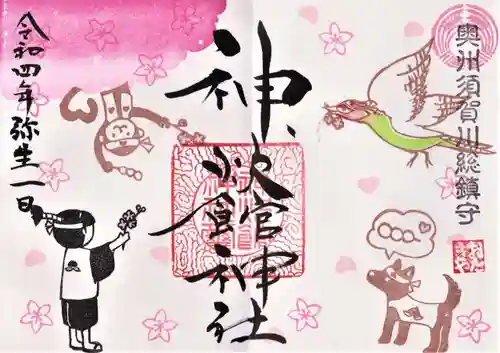 奥州須賀川総鎮守
神炊館神社
令和四年弥生一日